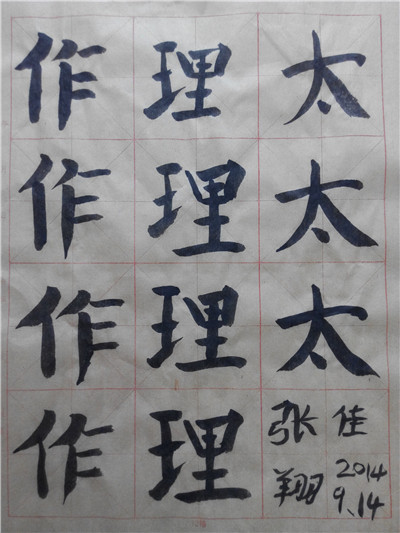 作 理 太
作 理 太
作 理 太
作 理
张 佳
翔 2014
9.14